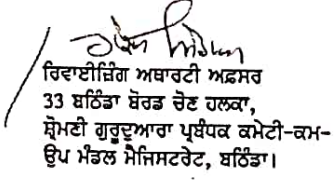 ਰਿਵਾਈਜ਼ਿੰਗ ਅਥਾਰਟੀ ਅਫ਼ਸਰ
33 ਬਠਿੰਡਾ ਬੋਰਡ ਚੋਣ ਹਲਕਾ,
ਸ਼੍ਰੋਮਣੀ ਗੁਰੂਦੁਆਰਾ ਪ੍ਰਬੰਧਕ ਕਮੇਟੀ-ਕਮ-
ਉਪ ਮੰਡਲ ਮੈਜਿਸਟਰੇਟ, ਬਠਿੰਡਾ।